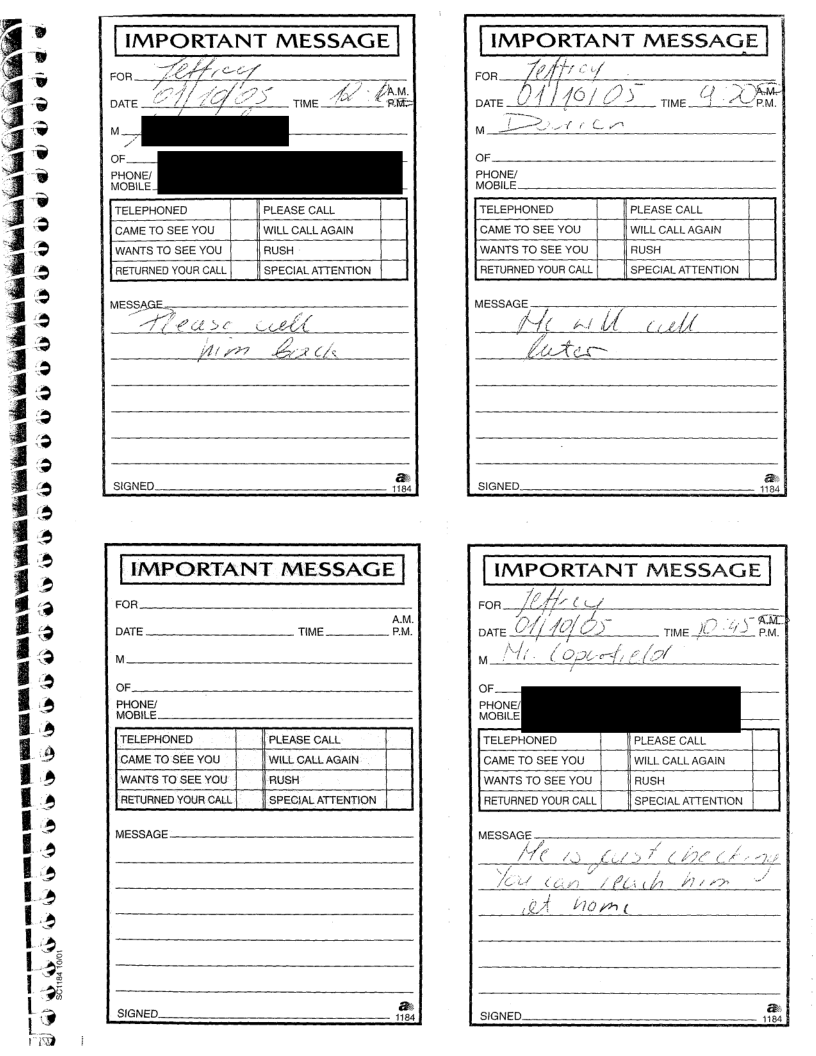 IMPORTANT MESSAGE
FOR Jeffrey
A.M.
DATE 01/10/05 TIME P.M.
M
OF
PHONE/
MOBILE
TELEPHONED PLEASE CALL
CAME TO SEE YOU WILL CALL AGAIN
WANTS TO SEE YOU RUSH
RETURNED YOUR CALL SPECIAL ATTENTION
MESSAGE
Please call
him back
SIGNED
a
1184
IMPORTANT MESSAGE
FOR Jeffrey
A.M.
DATE 01/10/05 TIME 9:20 P.M.
M
OF
PHONE/
MOBILE
TELEPHONED PLEASE CALL
CAME TO SEE YOU WILL CALL AGAIN
WANTS TO SEE YOU RUSH
RETURNED YOUR CALL SPECIAL ATTENTION
MESSAGE
He will call
later
SIGNED
a
1184
IMPORTANT MESSAGE
FOR
A.M.
DATE TIME P.M.
M
OF
PHONE/
MOBILE
TELEPHONED PLEASE CALL
CAME TO SEE YOU WILL CALL AGAIN
WANTS TO SEE YOU RUSH
RETURNED YOUR CALL SPECIAL ATTENTION
MESSAGE
SIGNED
a
1184
IMPORTANT MESSAGE
FOR Jeffrey
A.M.
DATE 01/10/05 TIME 10:45 P.M.
M Mr. Copperfield
OF
PHONE/
MOBILE
TELEPHONED PLEASE CALL
CAME TO SEE YOU WILL CALL AGAIN
WANTS TO SEE YOU RUSH
RETURNED YOUR CALL SPECIAL ATTENTION
MESSAGE
He is just checking
You can reach him
at home
SIGNED
a
1184
SC1184 10/01